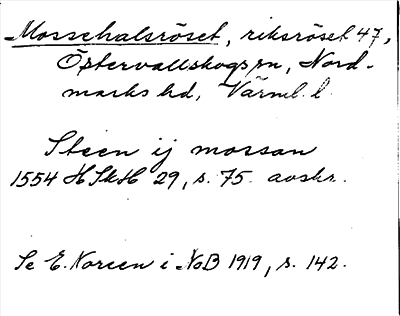 Mossehalsröset, riksröset 47,
Östervallskogs sn, Nord-
marks hd, Värml. l.
Steen ij mossan
1554 HSkH 29, s. 75. avskr.
Se E. Noreen i NoB 1919, s. 142.